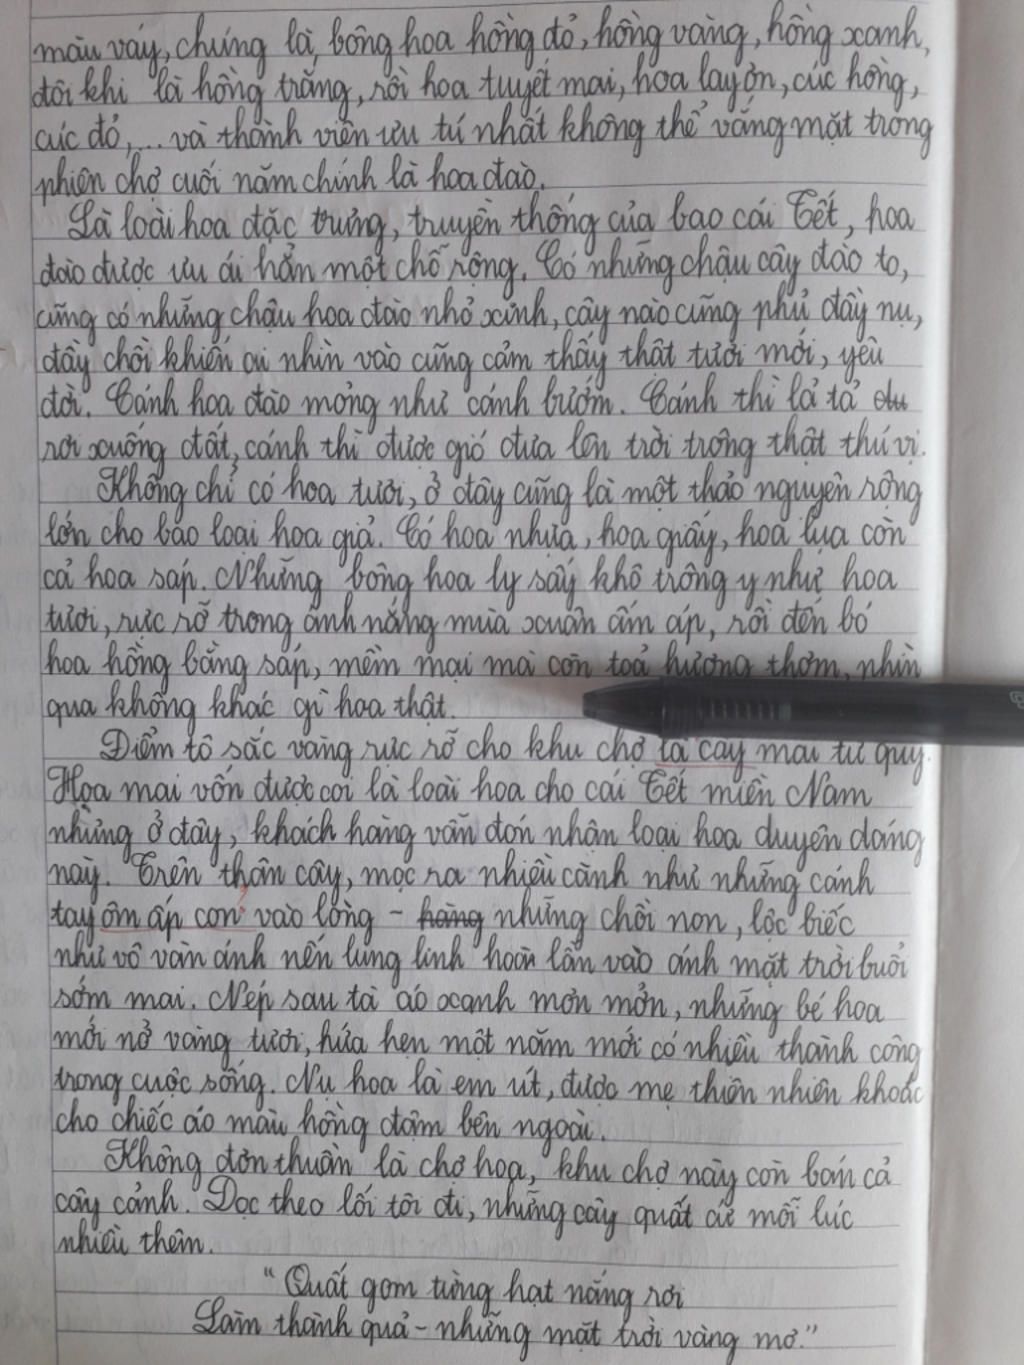 màu váy, chúng là bông hoa hồng đỏ, hồng vàng, hồng xanh,
đôi khi là hồng trắng, rồi hoa tuyết mai, hoa lay ơn, cúc hồng,
cúc đỏ,... và thành viên ưu tú nhất không thể vắng mặt trong
phiên chợ cuối năm chính là hoa đào.
Là loài hoa đặc trưng, truyền thống của bao cái Tết, hoa
đào được ưu ái hẳn một chỗ rộng. Có những chậu cây đào to,
cũng có những chậu hoa đào nhỏ xinh, cây nào cũng phủ đầy nụ,
đầy chồi khiến ai nhìn vào cũng cảm thấy thật tươi mới, yêu
đời. Cánh hoa đào mỏng như cánh bướm. Cánh thì lả tả
rơi xuống đất, cánh thì được gió đưa lên trời trông thật thú vị.
Không chỉ có hoa tươi, ở đây cũng là một thảo nguyên rộng
lớn cho bao loại hoa giả. Có hoa nhựa, hoa giấy, hoa lụa còn
cả hoa sáp. Những bông hoa ly sấy khô trông y như hoa
tươi, rực rỡ trong ánh nắng mùa xuân ấm áp, rồi đến bó
hoa hồng bằng sáp, mềm mại mà còn toả hương thơm, nhìn
qua không khác gì hoa thật.
Điểm tô sắc vàng rực rỡ cho khu chợ là cây mai tứ quý.
Hoa mai vốn được coi là loài hoa cho cái Tết miền Nam
nhưng ở đây, khách hàng vẫn đón nhận loại hoa duyên dáng
này. Trên thân cây, mọc ra nhiều cành như những cánh
tay ôm ấp con vào lòng - hàng những chồi non, lộc biếc
như vô vàn ánh nến lung linh hoà lẫn vào ánh mặt trời buổi
sớm mai. Nép sau tà áo xanh mơn mởn, những bé hoa
mới nở vàng tươi, hứa hẹn một năm mới có nhiều thành công
trong cuộc sống. Nụ hoa là em út, được mẹ thiên nhiên khoác
cho chiếc áo màu hồng đậm bên ngoài.
Không đơn thuần là chợ hoa, khu chợ này còn bán cả
cây cảnh. Dọc theo lối tôi đi, những cây quất cứ mỗi lúc
nhiều thêm.
"Quất gom từng hạt nắng rơi
Làm thành quả - những mặt trời vàng mơ."